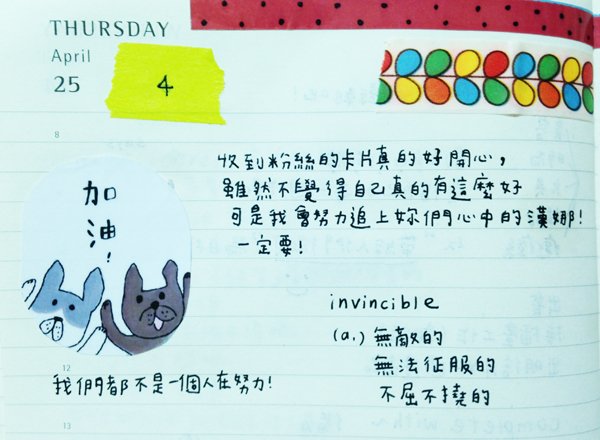 THURSDAY
April
25
4
8
收到粉絲的卡片真的好開心，
雖然不覺得自己真的有這麼好
可是我會努力追上妳們心中的漢娜！
一定要！
加油！
invincible
(a.) 無敵的
無法征服的
不屈不撓的
12
我們都不是一個人在努力！
13